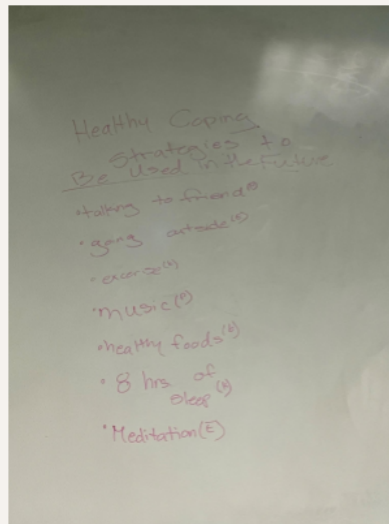 Healthy Coping
Strategies to
Be Used in the Future
• talking to friend
• going outside
• excerize
• music
• healthy foods
• 8 hrs of
sleep
• Meditation (E)